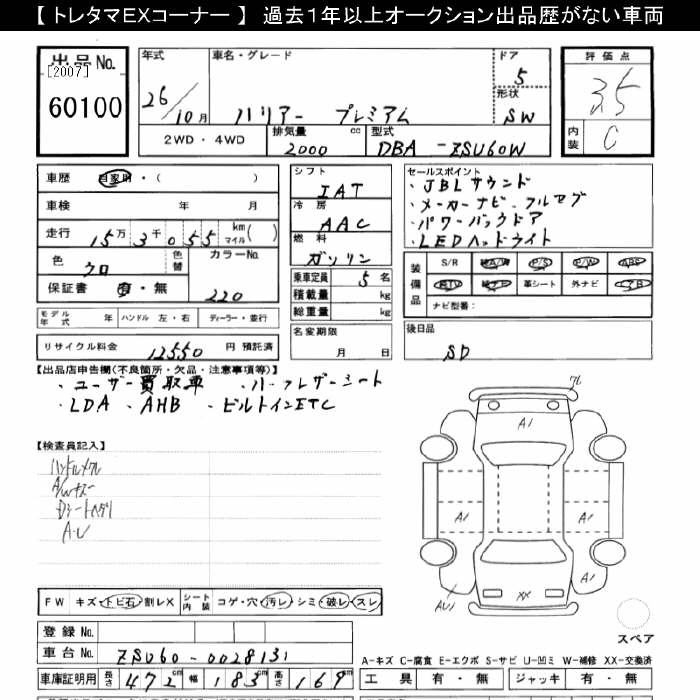 【 トレタマEXコーナー 】 過去1年以上オークション出品歴がない車両
出品 No.
[2007]
60100
年式 車名・グレード ドア
26/10月 ハリアー プレミアム 5
形状
SW
2WD・4WD 排気量 2000 cc 型式 DBA - ZSU60W
評価点
3.5
内装 C
車歴 自家用・( )
車検 年 月
走行 15万3千055 km マイル ( )
色 クロ 色替 カラーNo.
220
保証書 有・無
モデル年式 年 ハンドル 左・右 ディーラー・並行
リサイクル料金 12550 円 預託済
シフト
IAT
冷房
AAC
燃料
ガソリン
乗車定員 5 名
積載量 kg
総重量 kg
名変期限
月 日
セールスポイント
・JBLサウンド
・メーカーナビ・フルセグ
・パワーバックドア
・LEDヘッドライト
装備品 S/R 純A/W P/S P/W ABS
純TV 純ナビ 革シート 外ナビ エアB
ナビ型番:
後日品
SD
【出品店申告欄(不良箇所・欠品・注意事項等)】
・ユーザー買取車 ・ハーフレザーシート
・LDA ・AHB ・ビルトインETC
【検査員記入】
ハンドルスレ
A/Wキズ
Dシートヘタリ
A・U
A1
A1
A1
A1
AU1
XX
FW キズ・トビ石・割レX シート内装 コゲ・穴・汚レ・シミ・破レ・スレ
登録 No.
車台 No. ZSU60-0028131
車庫証明用 長さ 472 cm 幅 183 cm 高さ 169 cm
スペア
A-キズ C-腐食 E-エクボ S-サビ U-凹ミ W-補修 XX-交換済
工具 有・無 ジャッキ 有・無